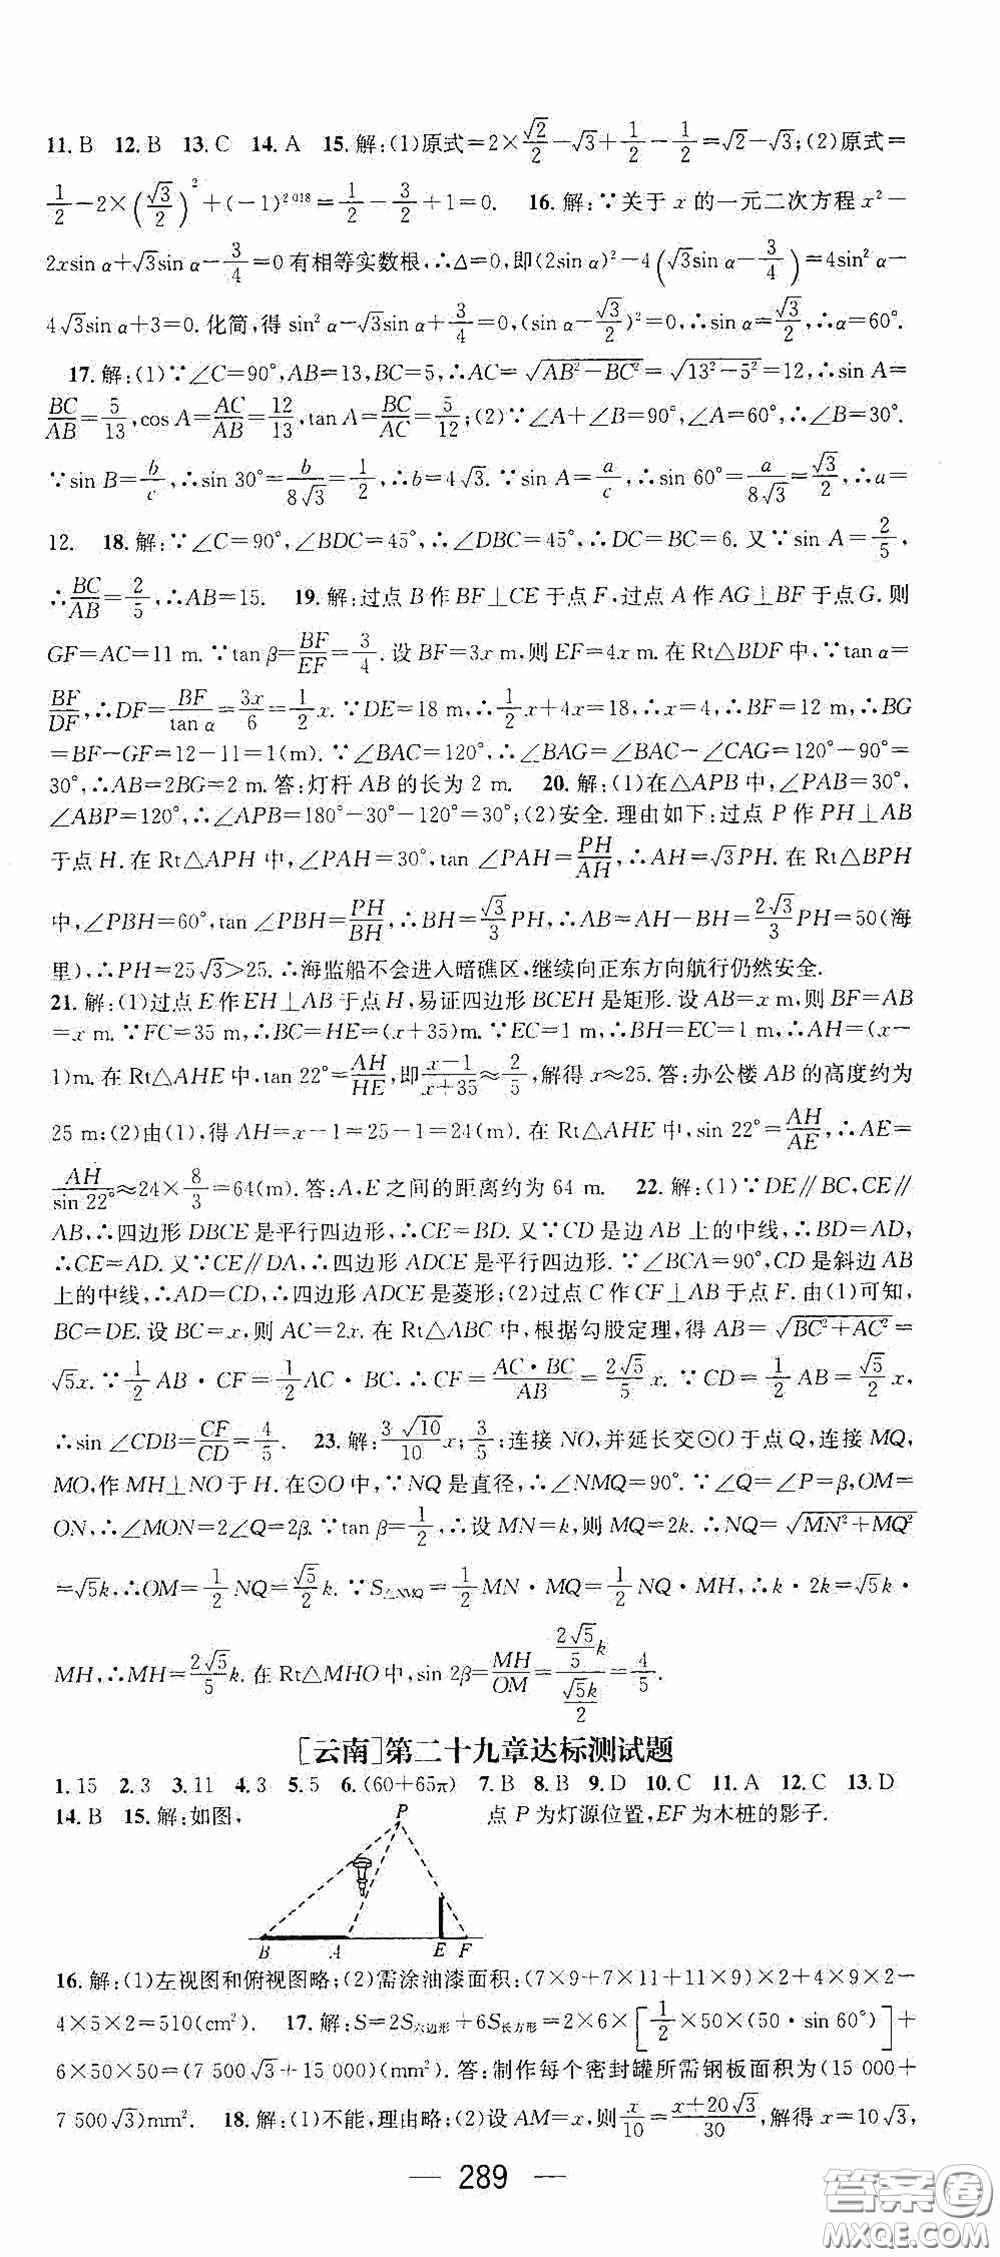 11. B 12. B 13. C 14. A 15. 解:(1)原式=2×√2/2-√3+1/2-1/2=√2-√3;(2)原式=
1/2-2×(√3/2)²+(-1)²⁰¹⁸=1/2-3/2+1=0. 16. 解:∵关于 x 的一元二次方程 x²-
2xsin α+√3sin α-3/4=0有相等实数根,∴Δ=0,即(2sin α)²-4(√3sin α-3/4)=4sin² α-
4√3sin α+3=0. 化简,得 sin² α-√3sin α+3/4=0,(sin α-√3/2)²=0,∴sin α=√3/2,∴α=60°.
17. 解:(1)∵∠C=90°,AB=13,BC=5,∴AC=√(AB²-BC²)=√(13²-5²)=12,∴sin A=
BC/AB=5/13,cos A=AC/AB=12/13,tan A=BC/AC=5/12;(2)∵∠A+∠B=90°,∠A=60°,∴∠B=30°.
∵sin B=b/c,∴sin 30°=b/8√3=1/2,∴b=4√3. ∵sin A=a/c,∴sin 60°=a/8√3=√3/2,∴a=
12. 18. 解:∵∠C=90°,∠BDC=45°,∴∠DBC=45°,∴DC=BC=6. 又∵sin A=2/5,
∴BC/AB=2/5,∴AB=15. 19. 解:过点 B 作 BF⊥CE 于点 F,过点 A 作 AG⊥BF 于点 G. 则
GF=AC=11 m. ∵tan β=BF/EF=3/4. 设 BF=3x m,则 EF=4x m. 在 Rt△BDF 中,∵tan α=
BF/DF,∴DF=BF/tan α=3x/6=1/2x. ∵DE=18 m,∴1/2x+4x=18,∴x=4,∴BF=12 m,∴BG
=BF-GF=12-11=1(m). ∵∠BAC=120°,∴∠BAG=∠BAC-∠CAG=120°-90°=
30°,∴AB=2BG=2 m. 答:灯杆 AB 的长为 2 m. 20. 解:(1)在△APB 中,∠PAB=30°,
∠ABP=120°,∴∠APB=180°-30°-120°=30°;(2)安全. 理由如下:过点 P 作 PH⊥AB
于点 H. 在 Rt△APH 中,∠PAH=30°,tan ∠PAH=PH/AH,∴AH=√3PH. 在 Rt△BPH
中,∠PBH=60°,tan ∠PBH=PH/BH,∴BH=√3/3PH,∴AB=AH-BH=2√3/3PH=50(海
里),∴PH=25√3>25. ∴海监船不会进入暗礁区,继续向正东方向航行仍然安全.
21. 解:(1)过点 E 作 EH⊥AB 于点 H,易证四边形 BCEH 是矩形. 设 AB=x m,则 BF=AB
=x m. ∵FC=35 m,∴BC=HE=(x+35)m. ∵EC=1 m,∴BH=EC=1 m,∴AH=(x-
1)m. 在 Rt△AHE 中,tan 22°=AH/HE,即x-1/x+35≈2/5,解得 x≈25. 答:办公楼 AB 的高度约为
25 m;(2)由(1),得 AH=x-1=25-1=24(m). 在 Rt△AHE 中,sin 22°=AH/AE,∴AE=
AH/sin 22°≈24×8/3=64(m). 答:A,E 之间的距离约为 64 m. 22. 解:(1)∵DE∥BC,CE∥
AB,∴四边形 DBCE 是平行四边形,∴CE=BD. 又∵CD 是边 AB 上的中线,∴BD=AD,
∴CE=AD. 又∵CE∥DA,∴四边形 ADCE 是平行四边形. ∵∠BCA=90°,CD 是斜边 AB
上的中线,∴AD=CD,∴四边形 ADCE 是菱形;(2)过点 C 作 CF⊥AB 于点 F. 由(1)可知,
BC=DE. 设 BC=x,则 AC=2x. 在 Rt△ABC 中,根据勾股定理,得 AB=√(BC²+AC²)=
√5x. ∵1/2AB·CF=1/2AC·BC,∴CF=AC·BC/AB=2√5/5x. ∵CD=1/2AB=√5/2x,
∴sin ∠CDB=CF/CD=4/5. 23. 解:3√10/10x;3/5;连接 NO,并延长交⊙O 于点 Q,连接 MQ,
MO,作 MH⊥NO 于 H. 在⊙O 中,∵NQ 是直径,∴∠NMQ=90°. ∵∠Q=∠P=β,OM=
ON,∴∠MON=2∠Q=2β. ∵tan β=1/2,∴设 MN=k,则 MQ=2k. ∴NQ=√(MN²+MQ²)
=√5k,∴OM=1/2NQ=√5/2k. ∵S△NMQ=1/2MN·MQ=1/2NQ·MH,∴k·2k=√5k·
MH,∴MH=2√5/5k. 在 Rt△MHO 中,sin 2β=MH/OM=(2√5/5k)/(√5k/2)=4/5.
[云南]第二十九章达标测试题
1. 15 2. 3 3. 11 4. 3 5. 5 6. (60+65π) 7. B 8. B 9. D 10. C 11. A 12. C 13. D
14. B 15. 解:如图, 点 P 为灯源位置,EF 为木桩的影子.
P
B A E F
16. 解:(1)左视图和俯视图略;(2)需涂油漆面积:(7×9+7×11+11×9)×2+4×9×2-
4×5×2=510(cm²). 17. 解:S=2S六边形+6S长方形=2×6×[1/2×50×(50×sin 60°)]+
6×50×50=(7 500√3+15 000)(mm²). 答:制作每个密封罐所需钢板面积为(15 000+
7 500√3)mm². 18. 解:(1)不能,理由略;(2)设 AM=x,则x/10=x+20√3/30,解得 x=10√3,
— 289 —
答案圈
MXQE.COM